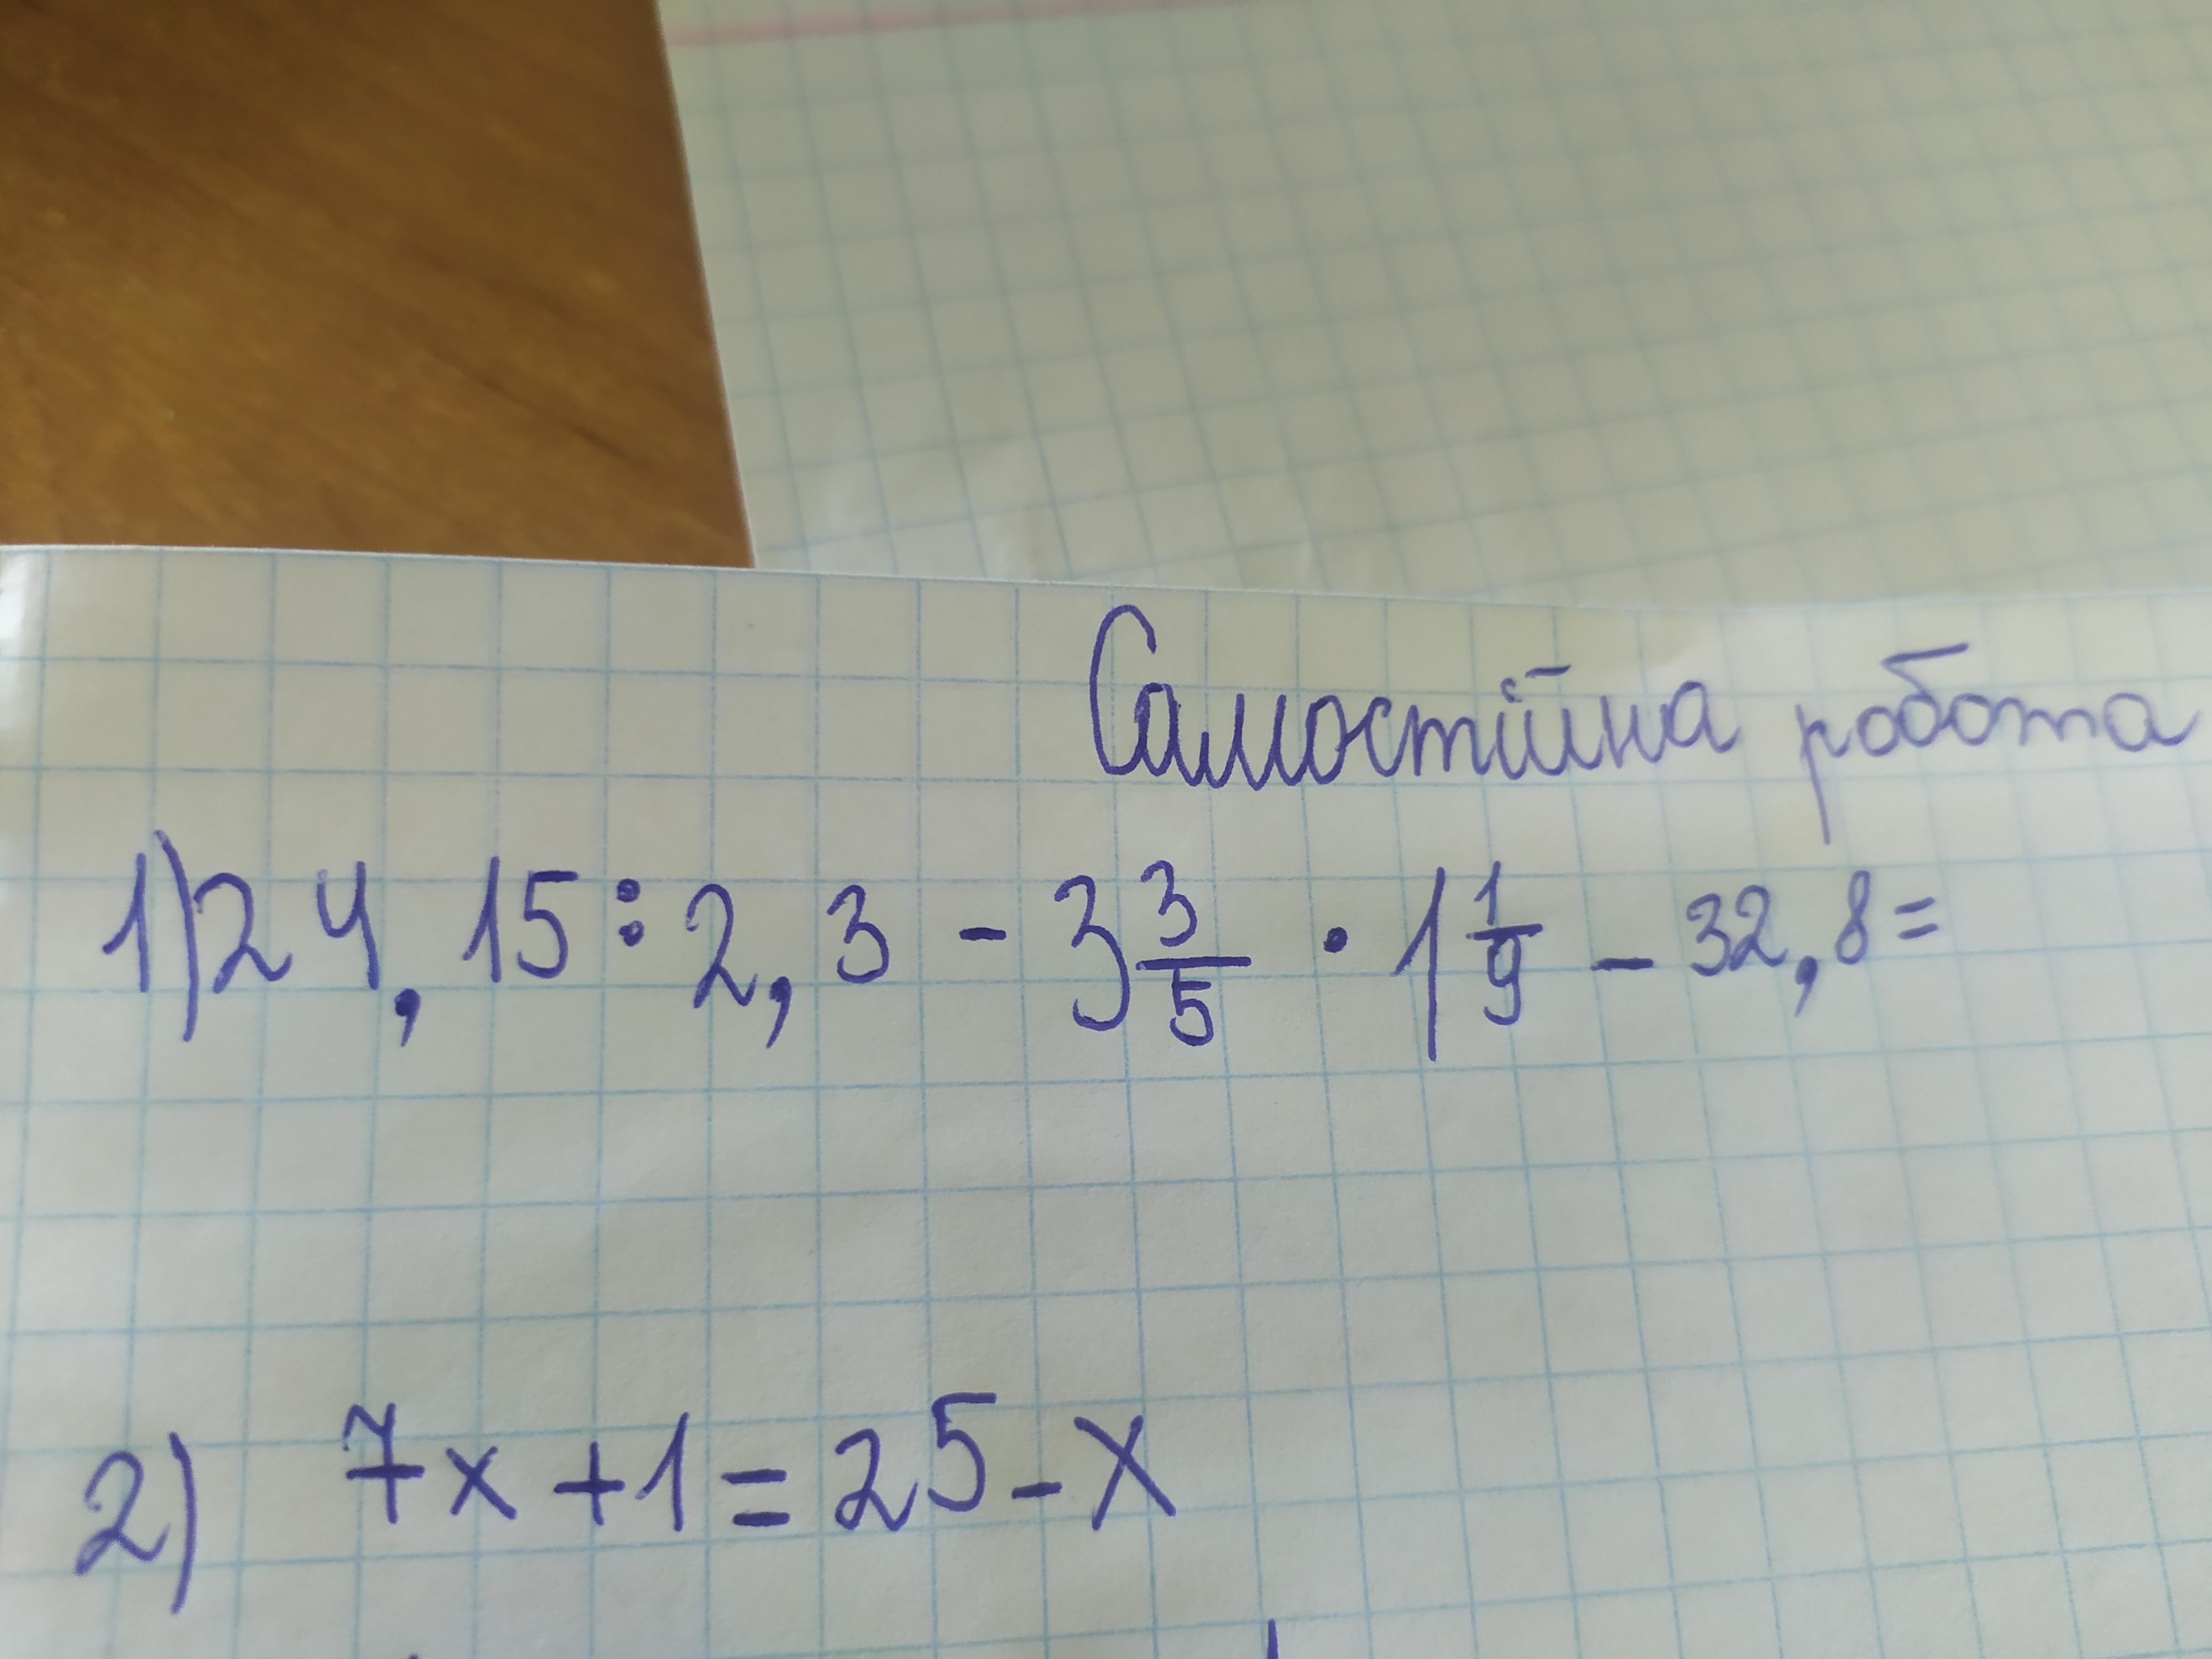 Самостійна робота
1) 24,15 : 2,3 - 3 3/5 · 1 1/9 - 32,8 =
2) 7x + 1 = 25 - x